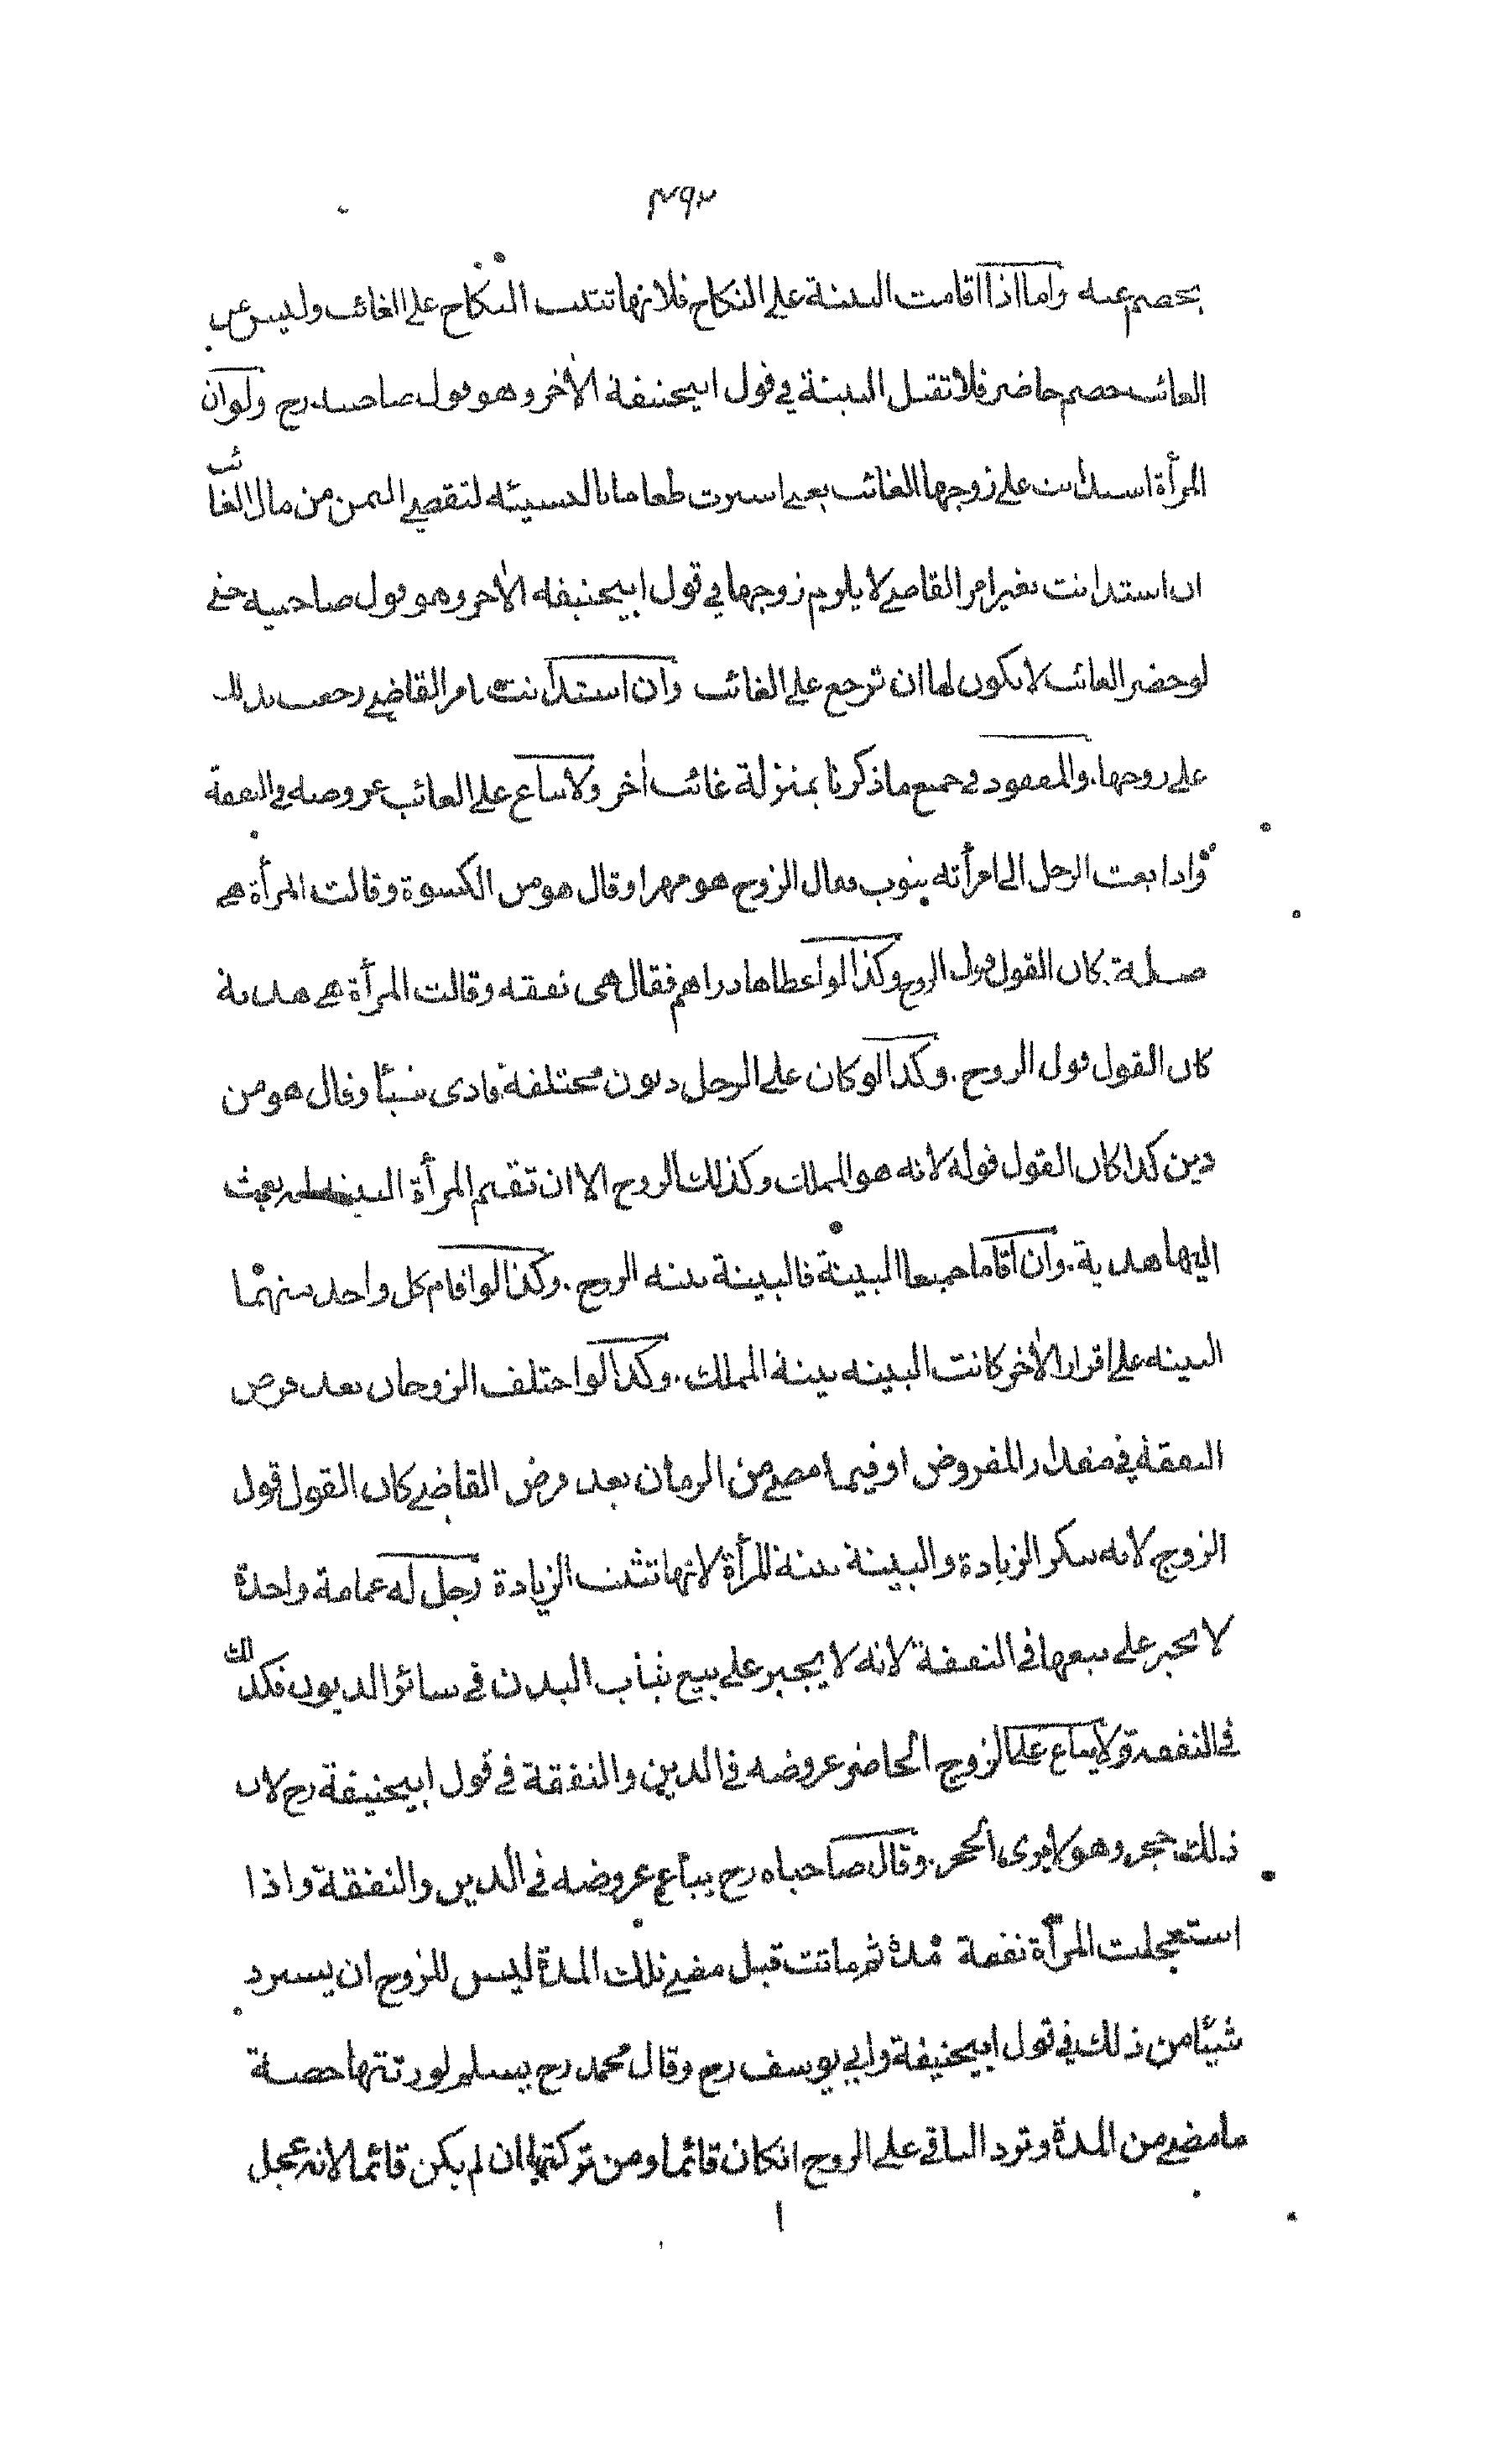 ٣٩٢
بخصم عنه واما اذا اقامت البينة على النكاح فلانها تثبت النكاح على الغائب وليس عن
الغائب خصم حاضر فلا تقبل البينة في قول ابيحنيفة الآخر وهو قول صاحبيه رح ولو ان
المرأة استدانت على زوجها الغائب يعني اشترت طعاما بالنسيئه لتقضي الثمن من مال الغائب
ان استدانت بغير امر القاضي لا يلزم زوجها في قول ابيحنيفه الآخر وهو قول صاحبيه حتى
لو حضر الغائب لا يكون لها ان ترجع على الغائب وان استدانت بامر القاضي رجعت بذلك
على زوجها. والمفقود في جميع ما ذكرنا بمنزلة غائب آخر ولا يباع على الغائب عروضه في النفقة
واذا بعث الرجل الى امرأته بثوب فقال الزوج هو مهر او قال هو من الكسوة وقالت المرأة هي
صلة كان القول قول الزوج وكذا لو اعطاها دراهم فقال هى نفقه وقالت المرأة هي هدية
كان القول قول الزوج. وكذا لو كان على الرجل ديون مختلفة فادى شيئا وقال هو من
دين كذا كان القول قوله لانه هو المملك وكذلك الزوج الا ان تقيم المرأة البينة بعث
اليها هدية. وان اقاما جميعا البينة فالبينة بينه الزوج. وكذا لو اقام كل واحد منهما
البينه على اقرار الآخر كانت البينه بينة المملك. وكذا لو اختلف الزوجان بعد فرض
النفقة في مقدار المفروض او فيما مضى من الزمان بعد فرض القاضي كان القول قول
الزوج لانه ينكر الزيادة والبينة بينة المرأة لانها تثبت الزيادة رجل له عمامة واحدة
لا يجبر على بيعها في النفقة لانه لا يجبر على بيع ثياب البدن في سائر الديون فكذلك
في النفقة ولا يباع على الزوج الحاضر عروضه في الدين والنفقة في قول ابيحنيفة رح لان
ذلك حجر وهو لا يرى الحجر. وقال صاحباه رح يباع عروضه في الدين والنفقة واذا
استعجلت المرأة نفقة مدة ثم ماتت قبل مضي تلك المدة ليس للزوج ان يسترد
شيئا من ذلك في قول ابيحنيفة وابي يوسف رح وقال محمد رح يسلم لورثتها حصة
ما مضى من المدة وترد الباقي على الزوج انكان قائما ومن تركتها ان لم يكن قائما لانه عجل